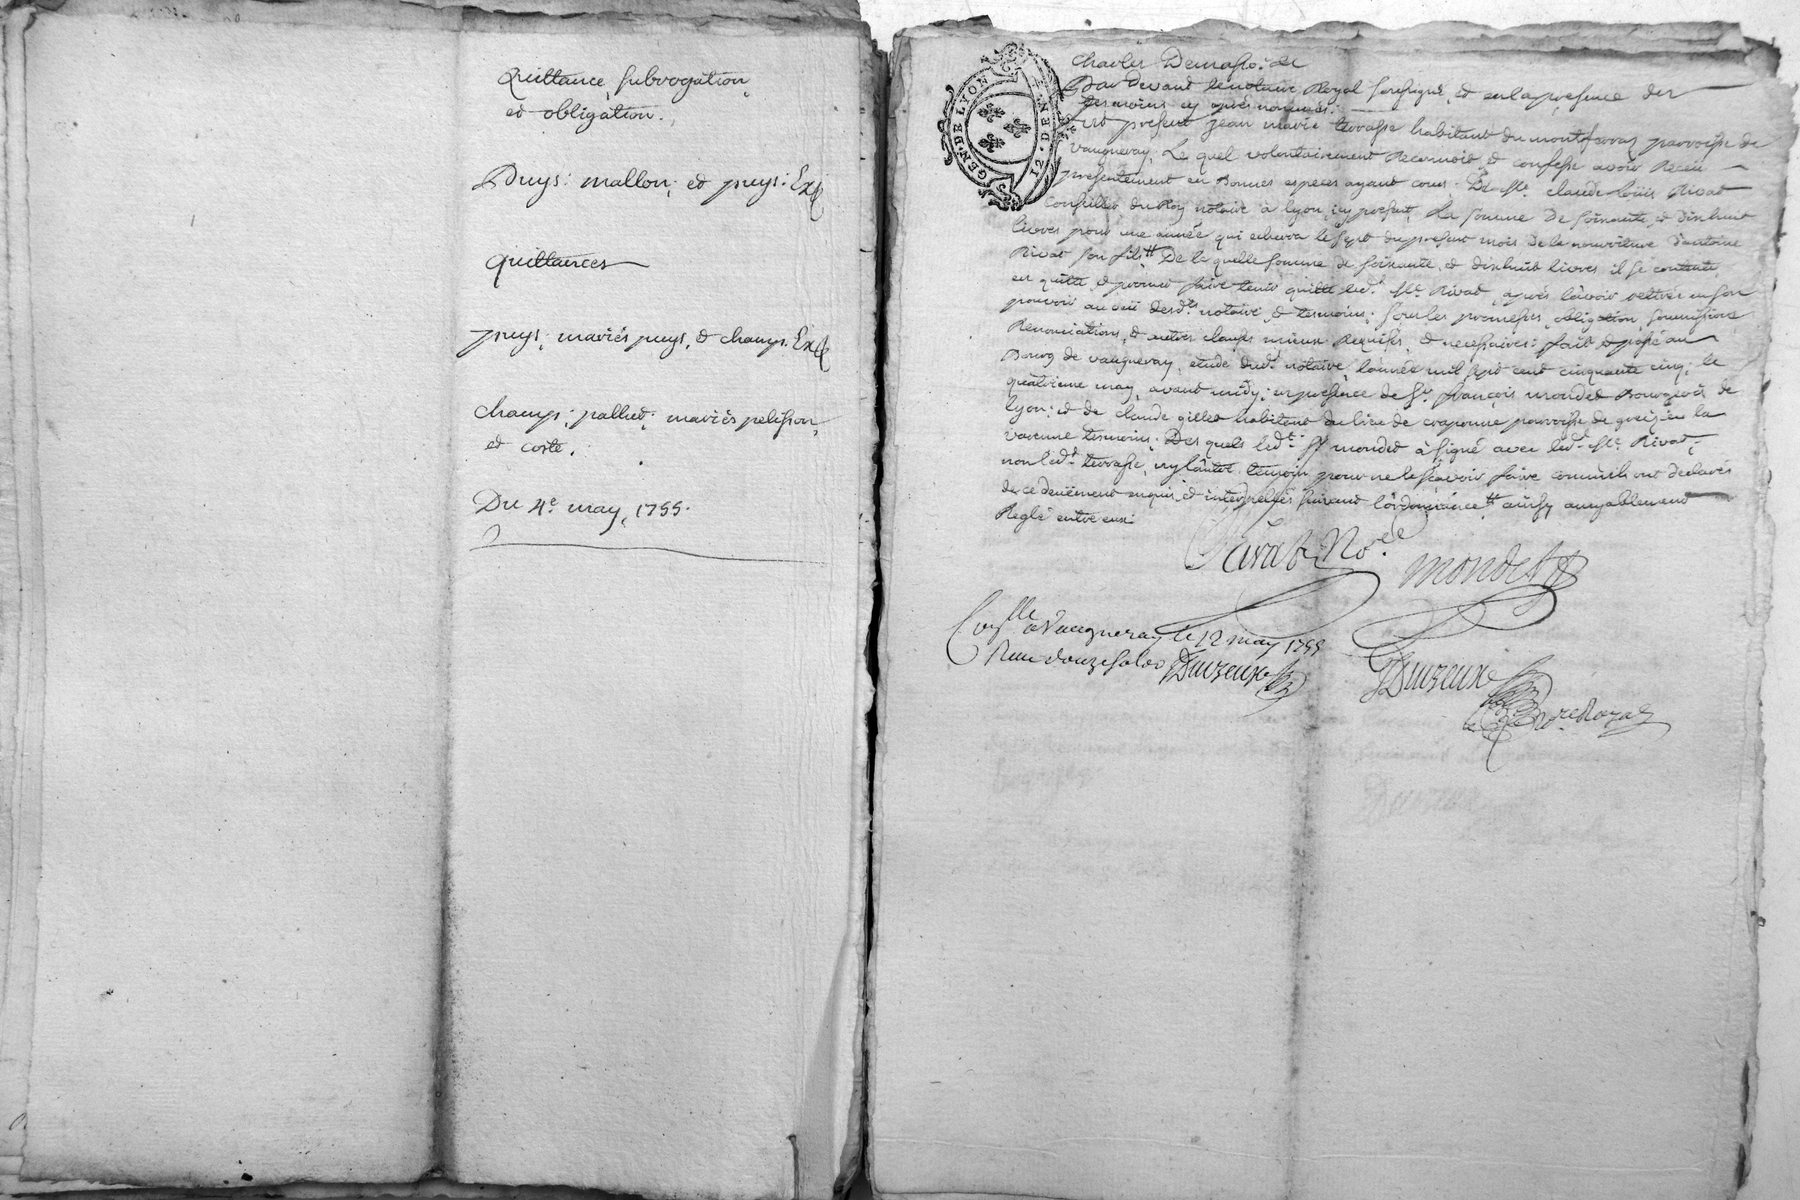 Quittance, subrogation,
et obligation.
Puys: mallon; et puys: Exp
quittances
puys, mariés puys, et champ: Exp
champ; palluet; mariés pelisson,
et coste.
Du 4e. may, 1755.
GEN. DE LYON
12. DEN.
Charles
Pardevant le notaire Royal soussigné, et en la présence des
tesmoins cy aprés nommés:
Est présent jean marie terrasse habitant du montferras parroisse de
vaugneray, Le quel volontairement Reconnoit et confesse avoir Receu
presentement en Bonnes espéces ayant cours. De Me. claude Loüis Rivat
Conseiller du Roy notaire à lyon, icy présent, La somme De soixante, et dixhuit
livres pour une année qui echerra le sept du présent mois de la nourriture d'antoine
Rivat son fils; De la quelle somme de soixante, et dixhuit livres il se contente,
en quitte, et promet faire tenir quitte led. Me. Rivat, aprés l'avoir retirée en son
pouvoir au veü desdts. notaire, et tesmoins; sous les promesses, obligation, soumissions
Renonciations, et autres clauses mieux Requises, et necessaires: fait et passé au
Bourg de vaugneray, etude dudt. notaire, L'année mil sept cent cinquante cinq, le
quatrieme may, avant midy; en présence de Sr. françois mondet Bourgeois de
lyon; et de claude gillet habitant du lieu de craponne parroisse de grezieu la
varenne tesmoins; Des quels ledt. Sr mondet à signé avec led. Me. Rivat,
non ledt. terrasse, ny l'autre temoin pour ne le sçavoir faire comm'ils ont declarés
de ce deuëment enquis, et interpellés suivant l'ordonnance, ainsy amyablement
Reglé entre eux.
Rivat Nore
mondet
Conslle a Vaugneray le 12 may 1755
Reçu douze sols Duvzeuxe
Duvzeuxe
nore Royal